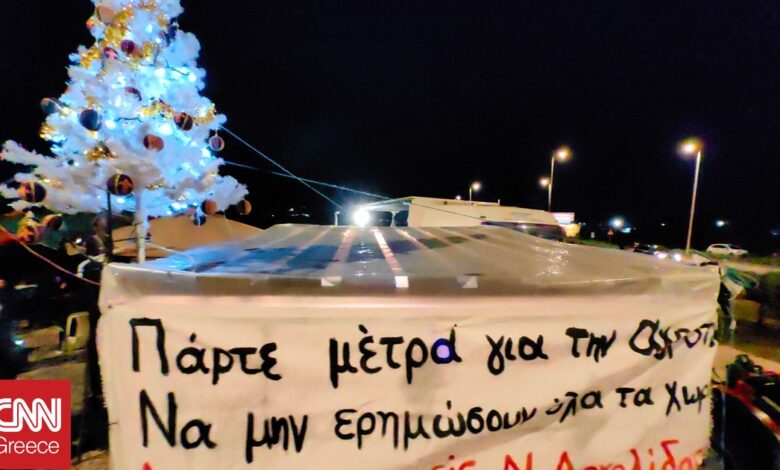 Πάρτε μέτρα για την αγροτ
Να μην ερημώσουν όλα τα χωρ
Ν. Αργολίδας
CNN
Greece